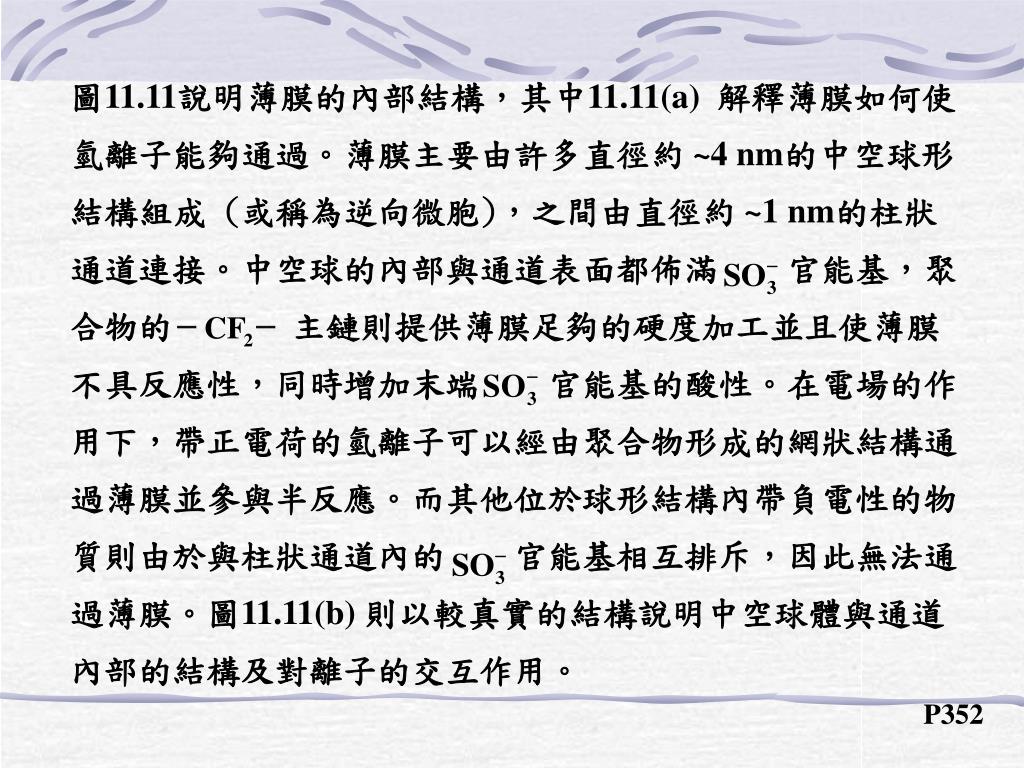 圖11.11說明薄膜的內部結構，其中11.11(a) 解釋薄膜如何使
氫離子能夠通過。薄膜主要由許多直徑約 ~4 nm的中空球形
結構組成（或稱為逆向微胞），之間由直徑約 ~1 nm的柱狀
通道連接。中空球的內部與通道表面都佈滿 SO₃⁻ 官能基，聚
合物的－CF₂－ 主鏈則提供薄膜足夠的硬度加工並且使薄膜
不具反應性，同時增加末端SO₃⁻ 官能基的酸性。在電場的作
用下，帶正電荷的氫離子可以經由聚合物形成的網狀結構通
過薄膜並參與半反應。而其他位於球形結構內帶負電性的物
質則由於與柱狀通道內的 SO₃⁻ 官能基相互排斥，因此無法通
過薄膜。圖11.11(b) 則以較真實的結構說明中空球體與通道
內部的結構及對離子的交互作用。
P352